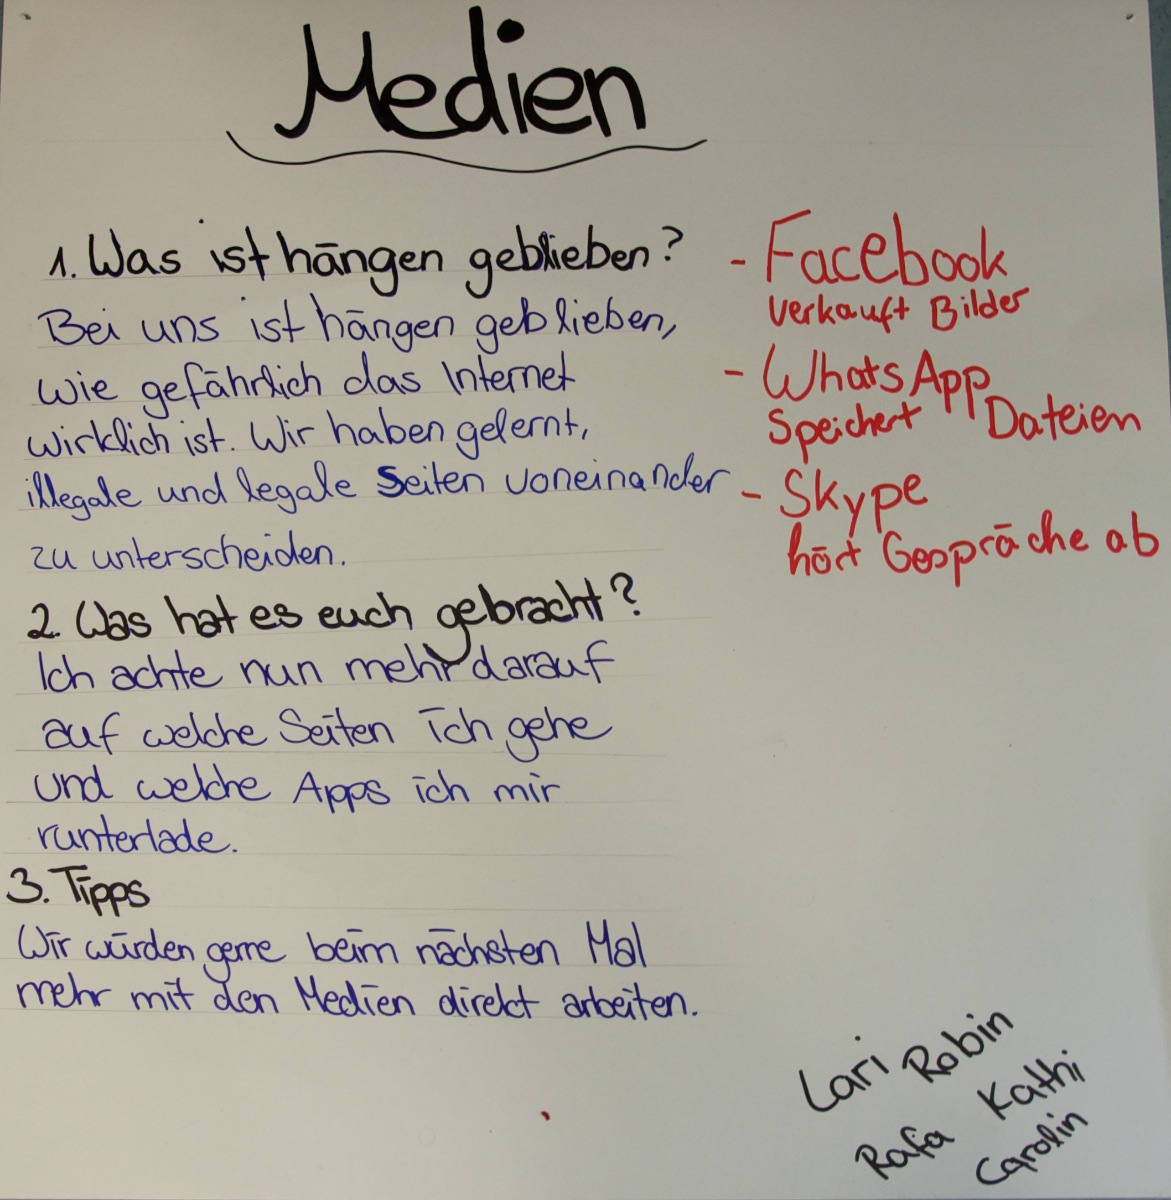 Medien
1. Was ist hängen geblieben?
Bei uns ist hängen geblieben,
wie gefährlich das Internet
wirklich ist. Wir haben gelernt,
illegale und legale Seiten voneinander
zu unterscheiden.
2. Was hat es euch gebracht?
Ich achte nun mehr darauf
auf welche Seiten ich gehe
und welche Apps ich mir
runterlade.
3. Tipps
Wir würden gerne beim nächsten Mal
mehr mit den Medien direkt arbeiten.
- Facebook
verkauft Bilder
- WhatsApp
Speichert Dateien
- Skype
hört Gespräche ab
Lari Robin
Rafa Kathi
Carolin